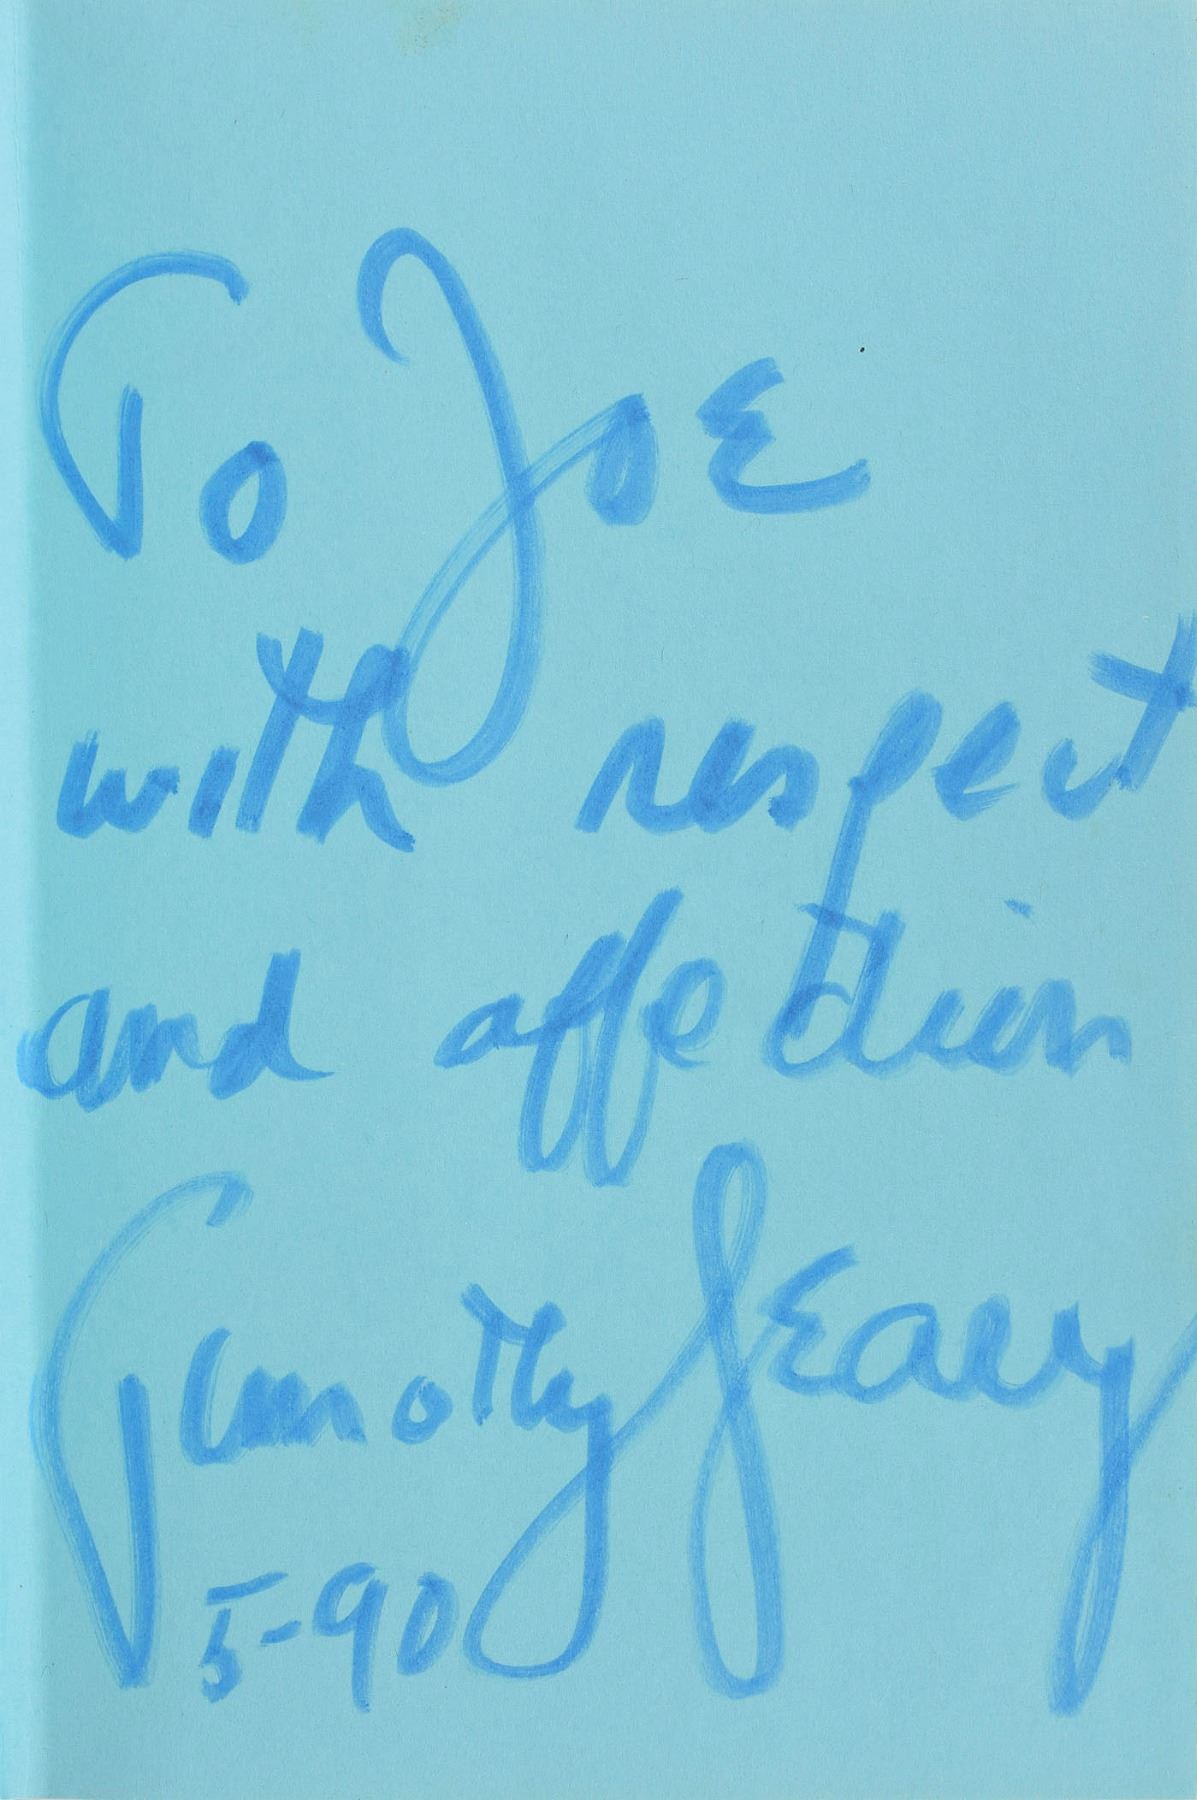 To Joe
with respect
and affection
Timothy Leary
5-90